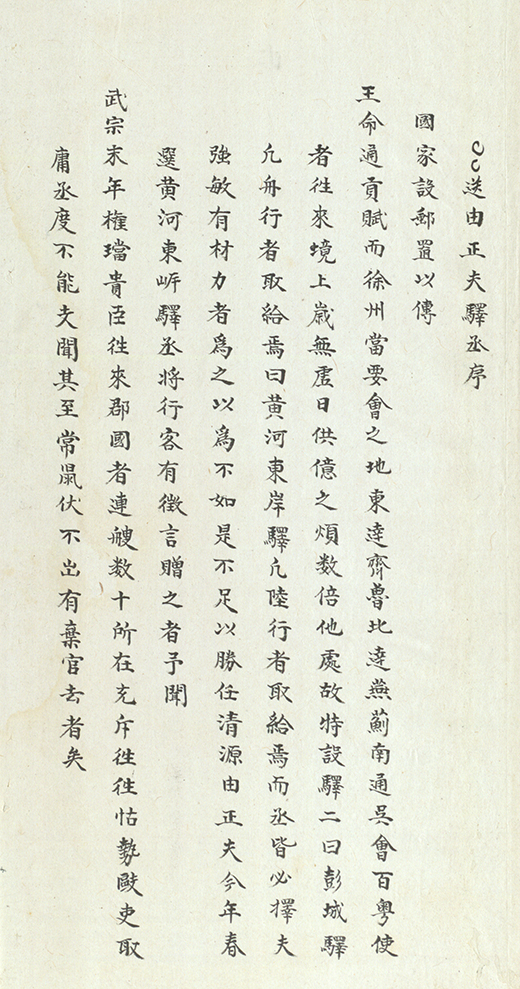 送由正夫驛丞序
國家設郵置以傳
王命通貢賦而徐州當要會之地東達齊魯北達燕薊南通吳會百粵使
者往來境上歲無虛日供億之煩数倍他處故特設驛二曰彭城驛
凢舟行者取給焉曰黄河東岸驛凢陸行者取給焉而丞皆必擇夫
強敏有材力者爲之以爲不如是不足以勝任清源由正夫今年春
選黄河東㟁驛丞将行客有徵言贈之者予聞
武宗末年權璫貴臣往來郡國者連艘数十所在充斥往往怙勢毆吏取
庸丞度不能支聞其至常鼠伏不出有棄官去者矣